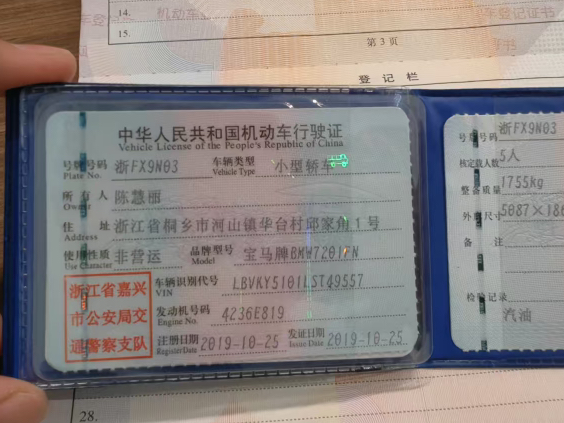 14.
15.
第3页
登记栏
中华人民共和国机动车行驶证
Vehicle License of the People's Republic of China
号牌号码 浙FX9N03 车辆类型 小型轿车
Plate No. Vehicle Type
所有人 陈慧丽
Owner
住址 浙江省桐乡市河山镇华台村邱家角1号
Address
使用性质 非营运 品牌型号 宝马牌
Use Character Model
浙江省嘉兴
市公安局交
通警察支队
车辆识别代号 LBVKY5101LST49557
VIN
发动机号码 4236E819
Engine No.
注册日期 2019-10-25 发证日期 2019-10-25
Register Date Issue Date
号牌号码 浙FX9N03
核定载人数 5人
整备质量 1755kg
外廓尺寸
备注
检验记录
汽油
28.